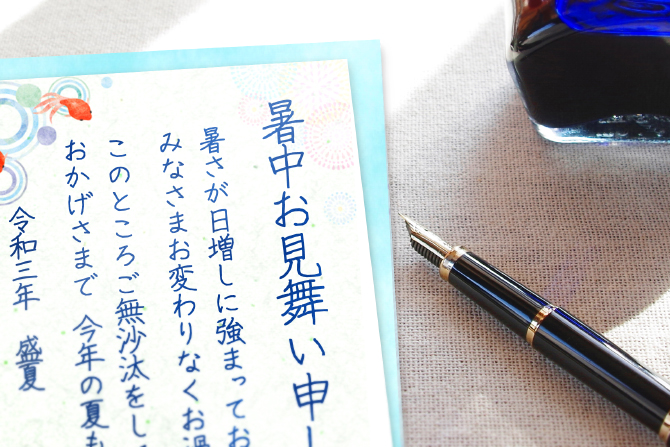 暑中お見舞い申し
暑さが日増しに強まってお
みなさまお変わりなくお過
このところご無沙汰をし
おかげさまで 今年の夏も
令和三年 盛夏